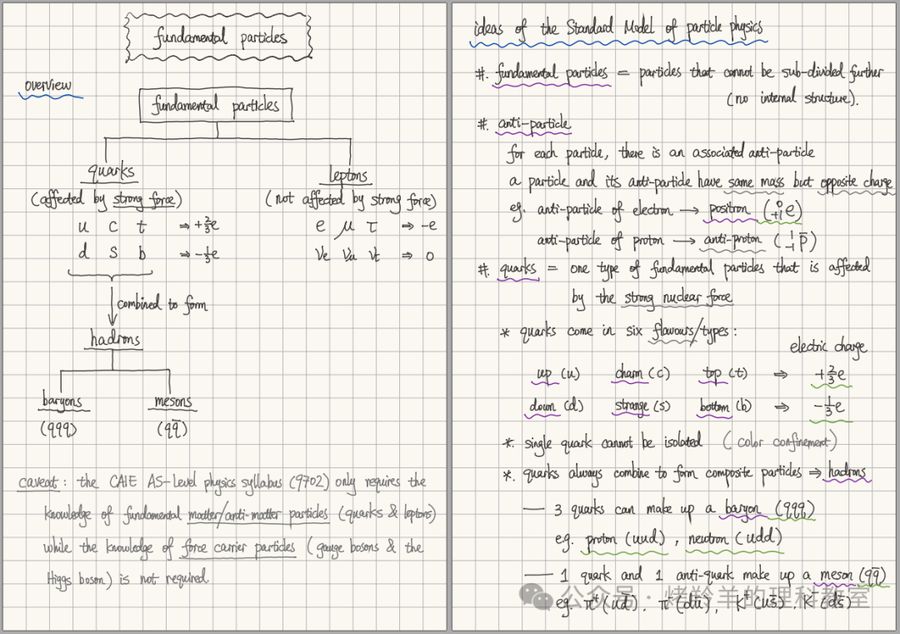 fundamental particles
overview
fundamental particles
quarks
(affected by strong force)
u c t ⇒ +⅔e
d s b ⇒ -⅓e
leptons
(not affected by strong force)
e μ τ ⇒ -e
νe νμ ντ ⇒ 0
combined to form
hadrons
baryons
(qqq)
mesons
(qq̄)
caveat: the CAIE AS-Level physics syllabus (9702) only requires the
knowledge of fundamental matter/anti-matter particles (quarks & leptons)
while the knowledge of force carrier particles (gauge bosons & the
Higgs boson) is not required
ideas of the Standard Model of particle physics
#. fundamental particles = particles that cannot be sub-divided further
(no internal structure).
#. anti-particle
for each particle, there is an associated anti-particle
a particle and its anti-particle have same mass but opposite charge
eg. anti-particle of electron → positron (⁰₊₁e)
anti-particle of proton → anti-proton (¹₋₁p̄)
#. quarks = one type of fundamental particles that is affected
by the strong nuclear force
* quarks come in six flavours/types:
electric charge
up (u) charm (c) top (t) ⇒ +⅔e
down (d) strange (s) bottom (b) ⇒ -⅓e
*. single quark cannot be isolated (color confinement)
*. quarks always combine to form composite particles ⇒ hadrons
— 3 quarks can make up a baryon (qqq)
eg. proton (uud), neutron (udd)
— 1 quark and 1 anti-quark make up a meson (qq̄)
eg. π⁺(ud̄), π⁻(dū), K⁺(us̄), K⁻(ds̄)
公众号 · 烤羚羊的理科教室